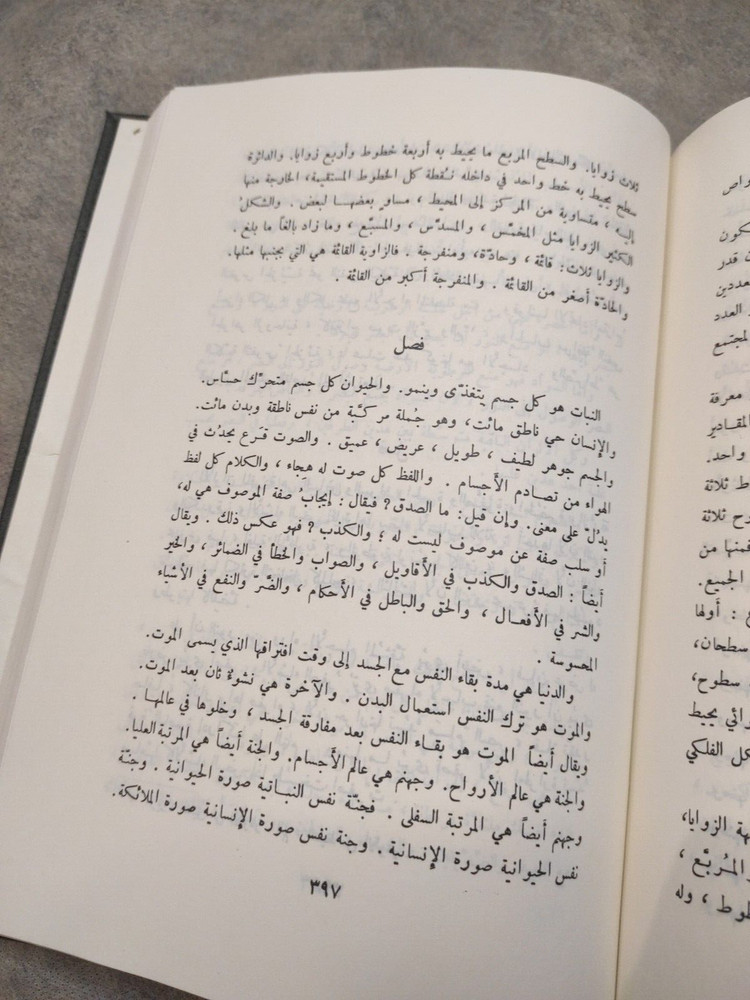 ثلاث زوايا. والسطح المربع ما يحيط به أربعة خطوط وأربع زوايا. والدائرة
سطح يحيط به خط واحد في داخله نـُقطة كل الخطوط المستقيمة، الخارجة منها
إليه ، متساوية من المركز إلى المحيط ، مساوٍ بعضهـا لبعض . والشكلُ
الكثير الزوايا مثل المخمّس ، والمسدّس ، والمسبّع ، وما زاد بالغاً ما بلغ .
والزوايا ثلاث: قائمة ، وحادّة، ومنفرجة . فالزاوية القائمة هي التي بجنبها مثلها.
والحادّة أصغر من القائمة . والمنفرجة أكبر من القائمة .
فصل
النبات هو كل جسم يتغذّى وينمو. والحيوان كل جسم متحرّك حسّاس.
والإنسان حي ناطق مائت، وهو جُملة مركـّبة من نفس ناطقة وبدن مائت.
والجسم جوهر لطيف ، طويل ، عريض ، عميق . والصوت قـَرع يحدُث في
الهواء من تصادم الأَجسام . واللفظ كل صوت له هِجاء ، والكلام كل لفظ
يدُلّ على معنى. وإن قيل: ما الصدق؟ فيقال: إيجابُ صفة الموصوف هي له،
أو سلب صفة عن موصوف ليست له ؛ والكذب ؟ فهو عكس ذلك . ويقال
أيضاً : الصدق والكذب في الأَقاويل ، والصواب والخطأ في الضمائر ، والخير
والشر في الأَفعـال ، والحق والباطل في الأَحكام ، والضّرّ والنفع في الأَشياء
المحسوسة .
والدنيا هي مدة بقاء النفس مع الجسد إلى وقت افتراقها الذي يسمى الموت.
والموت هو ترك النفس استعمال البدن . والآخرة هي نشوءٌ ثان بعد الموت.
ويقال أيضاً الموت هو بقـاء النفس بعد مفارقة الجسد ، وخلوها في عالمهـا .
والجنة هي عالم الأَرواح. وجهنم هي عالم الأَجسام. والجنة أيضاً هي المرتبة العليا.
وجهنم أيضاً هي المرتبة السفلى . فجنّـة نفس النبـاتية صورة الحيوانية . وجنّة
نفس الحيوانية صورة الإنسانية . وجنة نفس صورة الإنسانية صورة الملائكة.
٣٩٧
معرفة
واحد.
ثلاثة
ثلاثة
الجميع.
أولها
سطحان،
سطوح،
يحيط
الفلكي
الزوايا،